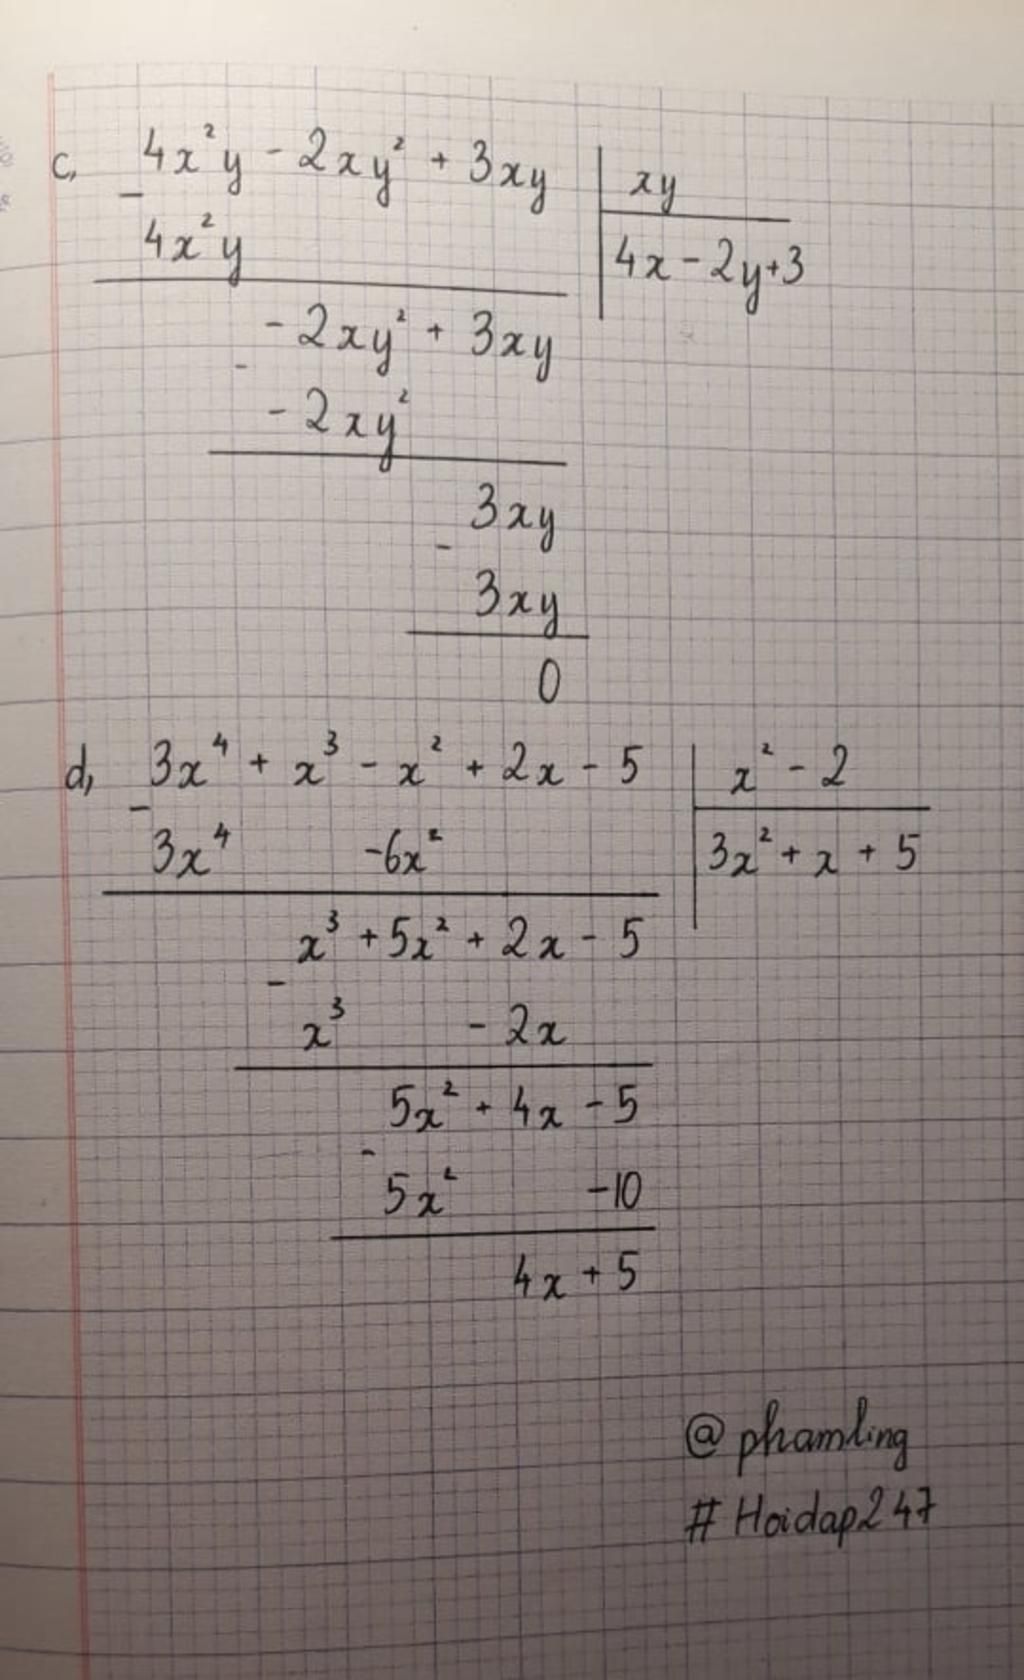 c, 4x²y - 2xy² + 3xy | xy
- 4x²y | 4x - 2y + 3
- 2xy² + 3xy
- - 2xy²
3xy
- 3xy
0
d, 3x⁴ + x³ - x² + 2x - 5 | x² - 2
- 3x⁴ -6x² | 3x² + x + 5
x³ + 5x² + 2x - 5
- x³ - 2x
5x² + 4x - 5
- 5x² -10
4x + 5
@ phamling
# Hoidap247